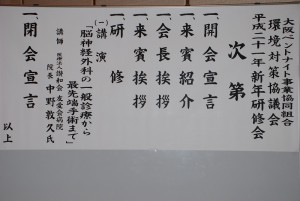 大阪ベントナイト事業協同組合
環境対策協議会
平成二十一年新年研修会
次第
一、開会宣言
一、来賓紹介
一、会長挨拶
一、来賓挨拶
一、研修
㈠講演
「脳神経外科の一般診療から
最先端手術まで」
講師 医療法人 讃和会 友愛会病院
院長 中野敦久氏
一、閉会宣言
以上